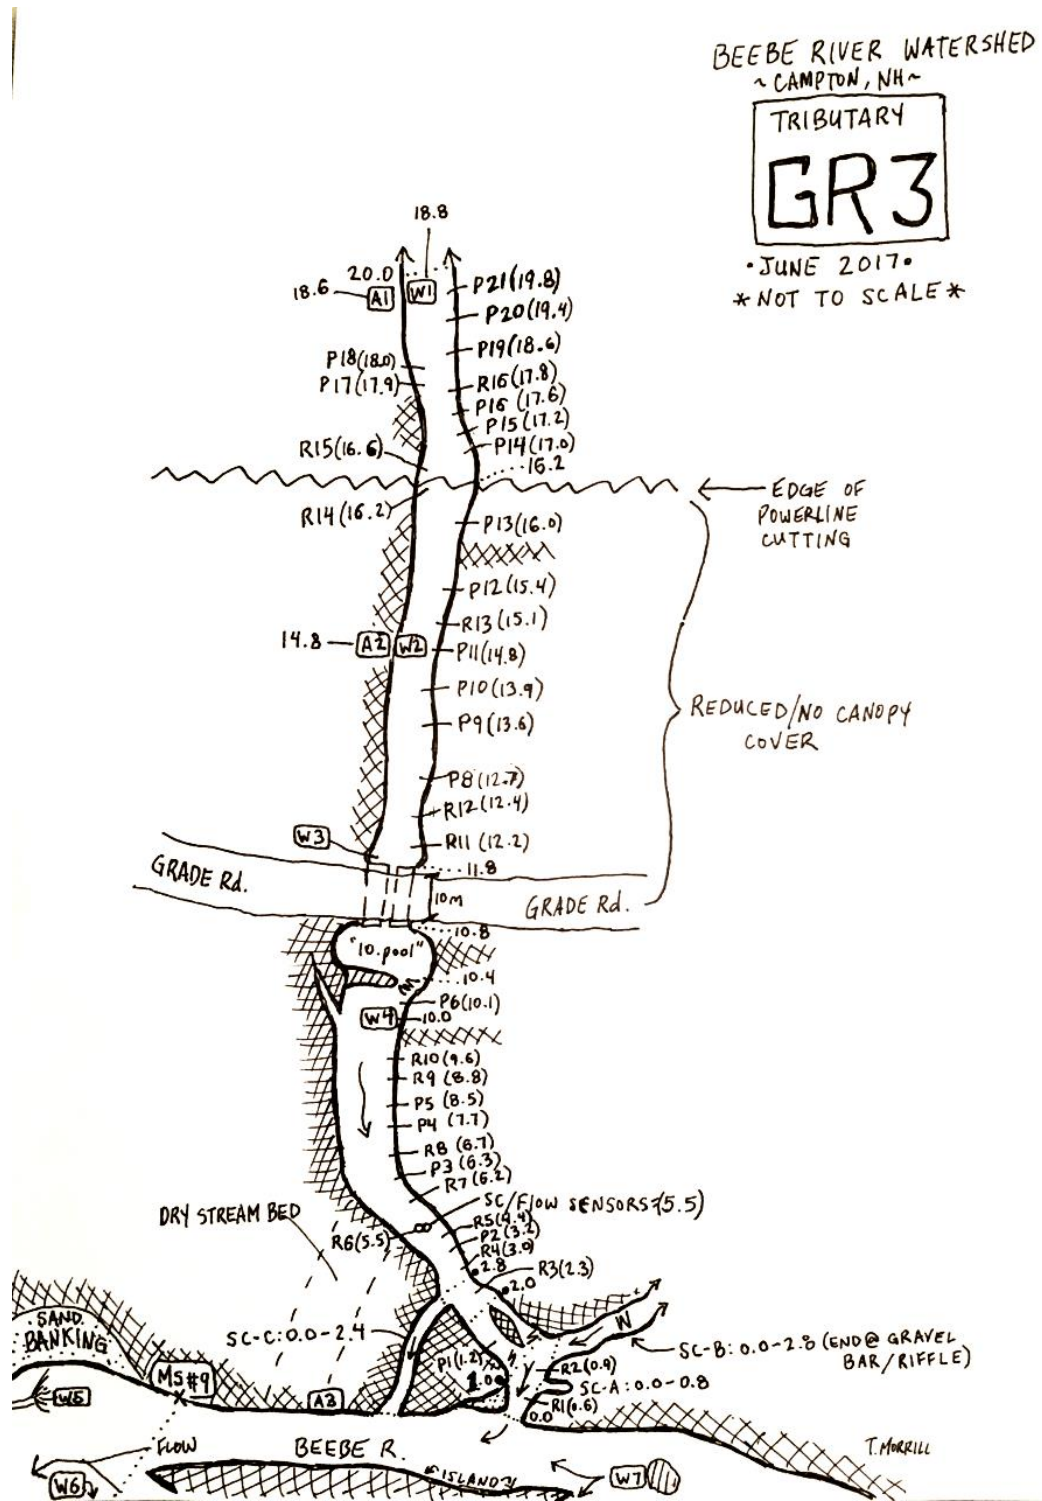 BEEBE RIVER WATERSHED
~CAMPTON, NH~
TRIBUTARY
GR3
•JUNE 2017•
*NOT TO SCALE*
18.8
20.0
18.6
A1
W1
P21(19.8)
P20(19.4)
P19(18.6)
P18(18.0)
P17(17.9)
R16(17.8)
P16(17.6)
P15(17.2)
P14(17.0)
R15(16.6)
16.2
EDGE OF
POWERLINE
CUTTING
R14(16.2)
P13(16.0)
P12(15.4)
R13(15.1)
14.8
A2
W2
P11(14.8)
P10(13.9)
P9(13.6)
REDUCED/NO CANOPY
COVER
P8(12.7)
R12(12.4)
W3
R11(12.2)
11.8
GRADE Rd.
10M
GRADE Rd.
10.8
"10.pool"
10.4
P6(10.1)
W4
10.0
R10(9.6)
R9(8.8)
P5(8.5)
P4(7.7)
R8(6.7)
P3(6.3)
R7(6.2)
SC/FLOW SENSORS(5.5)
DRY STREAM BED
R6(5.5)
R5(4.4)
P2(3.2)
R4(3.0)
2.8
R3(2.3)
2.0
SAND
BANKING
SC-C:0.0-2.4
W
SC-B:0.0-2.8 (END@ GRAVEL
BAR/RIFFLE)
P1(1.2)
R2(0.9)
MS#9
1.0
SC-A:0.0-0.8
W5
A3
R1(0.6)
0.0
FLOW
BEEBE R.
T.MORRILL
W6
ISLAND
W7